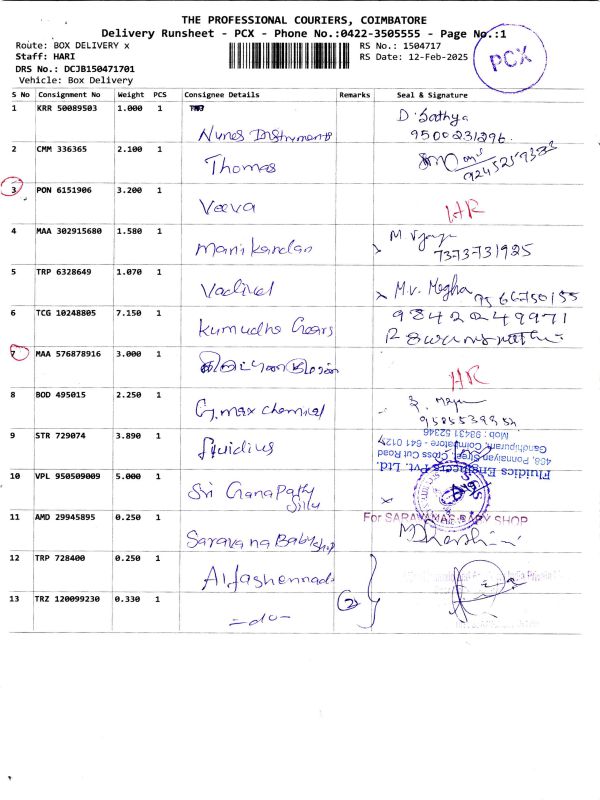 THE PROFESSIONAL COURIERS, COIMBATORE
Delivery Runsheet - PCX - Phone No.:0422-3505555 - Page No.:1
Route: BOX DELIVERY x
RS No.: 1504717
Staff: HARI
RS Date: 12-Feb-2025
DRS No.: DCJB150471701
Vehicle: Box Delivery
PCX
S No Consignment No Weight PCS Consignee Details Remarks Seal & Signature
1 KRR 50089503 1.000 1 Nunes Instruments D. Sathya
9500231296.
2 CMM 336365 2.100 1 Thomas
3 PON 6151906 3.200 1 Veeva HR
4 MAA 302915680 1.580 1 Manikandan M
7373731925
5 TRP 6328649 1.070 1 Vadivel M.V. Megha 9566750155
6 TCG 10248805 7.150 1 Kumudha Gears 9842249971
7 MAA 576878916 3.000 1 HR
8 BOD 495015 2.250 1 G.max chemical
9 STR 729074 3.890 1 fluidius
Fluidics Engineers Pvt. Ltd.
468, Ponnaiyan Street, Cross Cut Road
Gandhipuram, Coimbatore - 641 012
Mob : 98431 52346
10 VPL 950509009 5.000 1 Sri Ganapathy
Silks
11 AMD 29945895 0.250 1 Saravana Baby shop
For SARAVANAS BABY SHOP
12 TRP 728400 0.250 1
13 TRZ 120099230 0.330 1 -do- 2